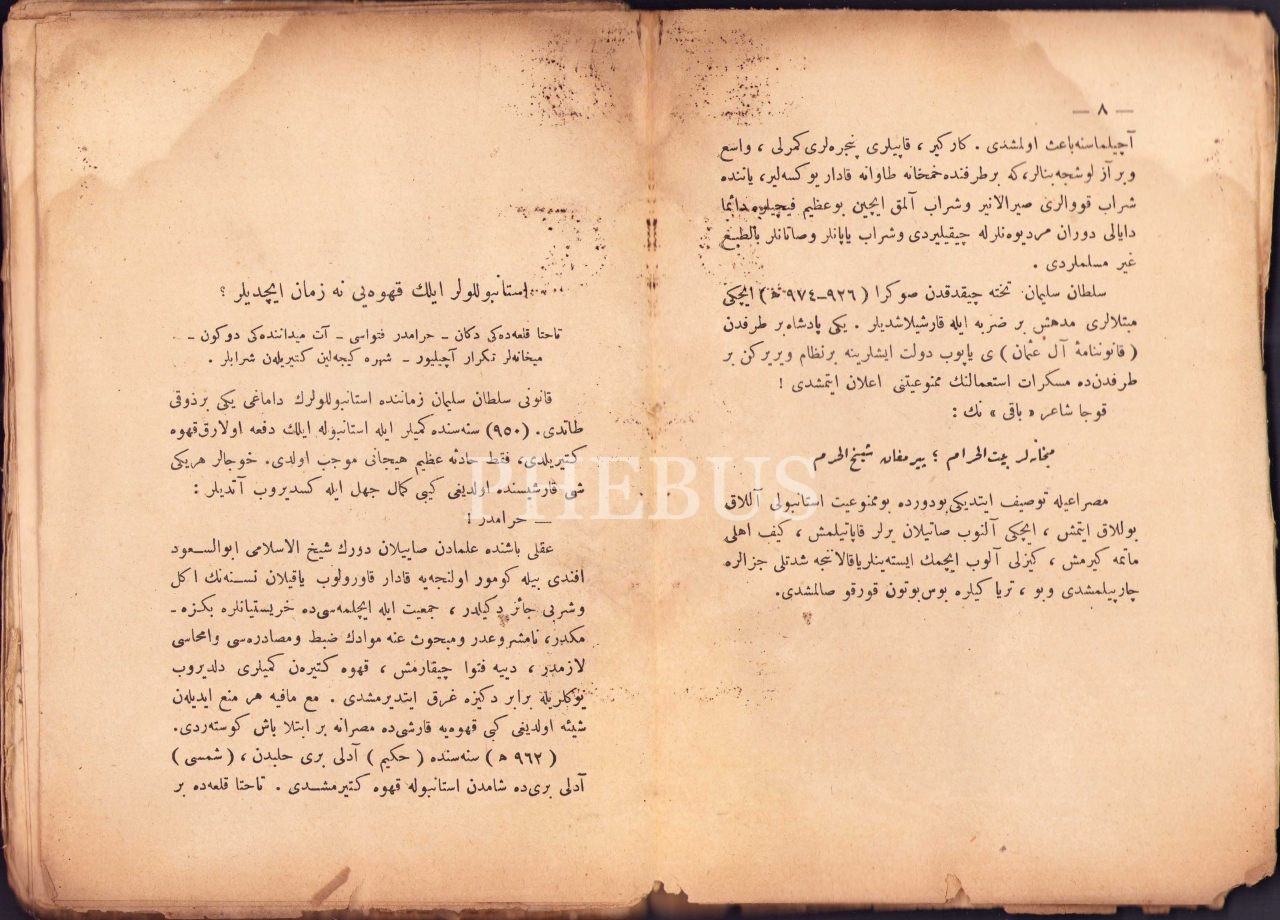 — ٨ —
آچیلماسنه باعث اولمشدی . کارکیر ، قاپیلری پنجره‌لری کمرلی ، واسع
وبر آز لوشجه بنالر،که بر طرفنده خمخانه طاوانه قادار یوکسه‌لیر، یاننده
شراب قووالری صیرالانیر وشراب آلمق ایچین بو عظیم فیچیلره دائما
دایالی دوران مردیوه‌نلرله چیقیلیردی وشراب یاپانلر وصاتانلر بالطبع
غیر مسلملردی .
سلطان سلیمان تخته چیقدقدن صوکرا ( ٩٢٦-٩٧٤ ﻫ ) ایچکی
مبتلالری مدهش بر ضربه ایله قارشیلاشدیلر . یکی پادشاه بر طرفدن
( قانوننامهٔ آل عثمان ) ی یاپوب دولت ایشلرینه بر نظام ویریرکن بر
طرفدن‌ده مسکرات استعمالنك ممنوعیتنی اعلان ایتمشدی !
قوجا شاعر « باقی » نك :
میخانه‌لر بیت الحرام ؛ پیر مغان شیخ الحرم
مصراعیله توصیف ایتدیکی بودورده بوممنوعیت استانبولی آللاق
بوللاق ایتمش ، ایچکی آلنوب صاتیلان یرلر قاپاتیلمش ، کیف اهلی
ماتمه کیرمش ، کیزلی آلوب ایچمك ایسته‌ینلر یاقالاننجه شدتلی جزالره
چارپیلمشدی وبو ، تریاکیلره بوس‌بوتون قورقو صالمشدی.
استانبوللولر ایلك قهوه‌یی نه زمان ایچدیلر ؟
تاحتا قلعه‌ده‌کی دکان – حرامدر فتواسی – آت میداننده‌کی دوکون –
میخانه‌لر تکرار آچیلیور – شهره کیجه‌لین کتیریلن شرابلر .
قانونی سلطان سلیمان زماننده استانبوللولرك داماغی یکی بر ذوقی
طاتدی. (٩٥٠) سنه‌سنده کمیلر ایله استانبوله ایلك دفعه اولارق قهوه
کتیریلدی، فقط حادثه عظیم هیجانی موجب اولدی. خوجالر هر یکی
شی قارشیسنده اولدیغی کیبی کمال جهل ایله کسدیروب آتدیلر :
— حرامدر !
عقلی باشنده علمادن صاییلان دورك شیخ الاسلامی ابوالسعود
افندی بیله کومور اولنجه‌یه قادار قاورولوب یاقیلان نسنه‌نك اکل
وشربی جائز دکیلدر ، جمعیت ایله ایچلمه‌سی‌ده خریستیانلره بکزه-
مکدر، نامشروعدر ومبحوث عنه موادك ضبط ومصادره‌سی وامحاسی
لازمدر ، دییه فتوا چیقارمش ، قهوه کتیره‌ن کمیلری دلدیروب
یوکلریله برابر دکیزه غرق ایتدیرمشدی . مع مافیه هر منع ایدیلن
شیئه اولدیغی کبی قهوه‌یه قارشی‌ده مصرانه بر ابتلا باش کوسته‌ردی.
( ٩٦٢ ﻫ ) سنه‌سنده ( حکیم ) آدلی بری حلبدن ، ( شمسی )
آدلی بری‌ده شامدن استانبوله قهوه کتیرمشدی . تاحتا قلعه‌ده بر
PHEBUS